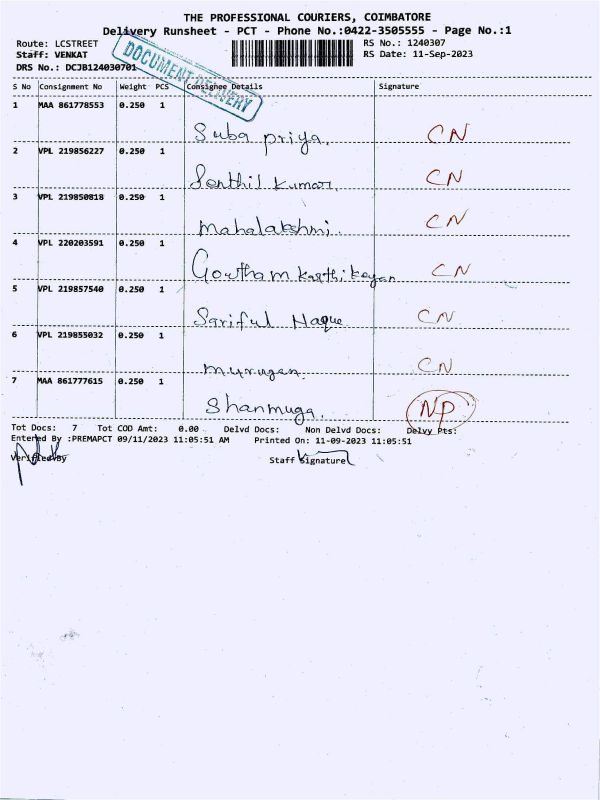 THE PROFESSIONAL COURIERS, COIMBATORE
Delivery Runsheet - PCT - Phone No.:0422-3505555 - Page No.:1
Route: LCSTREET RS No.: 1240307
Staff: VENKAT RS Date: 11-Sep-2023
DRS No.: DCJB124030701
DOCUMENT DELIVERY
S No Consignment No Weight PCS Consignee Details Signature
1 MAA 861778553 0.250 1
Suba priya. CN
2 VPL 219856227 0.250 1
Senthil kumar. CN
3 VPL 219850818 0.250 1
Mahalakshmi. CN
4 VPL 220203591 0.250 1
Gowtham karthikeyan CN
5 VPL 219857540 0.250 1
Sariful Haque CN
6 VPL 219855032 0.250 1
murugan. CN
7 MAA 861777615 0.250 1
Shanmuga. NP
Tot Docs: 7 Tot COD Amt: 0.00 Delvd Docs: Non Delvd Docs: Delvy Pts:
Entered By :PREMAPCT 09/11/2023 11:05:51 AM Printed On: 11-09-2023 11:05:51
Verified By Staff Signature